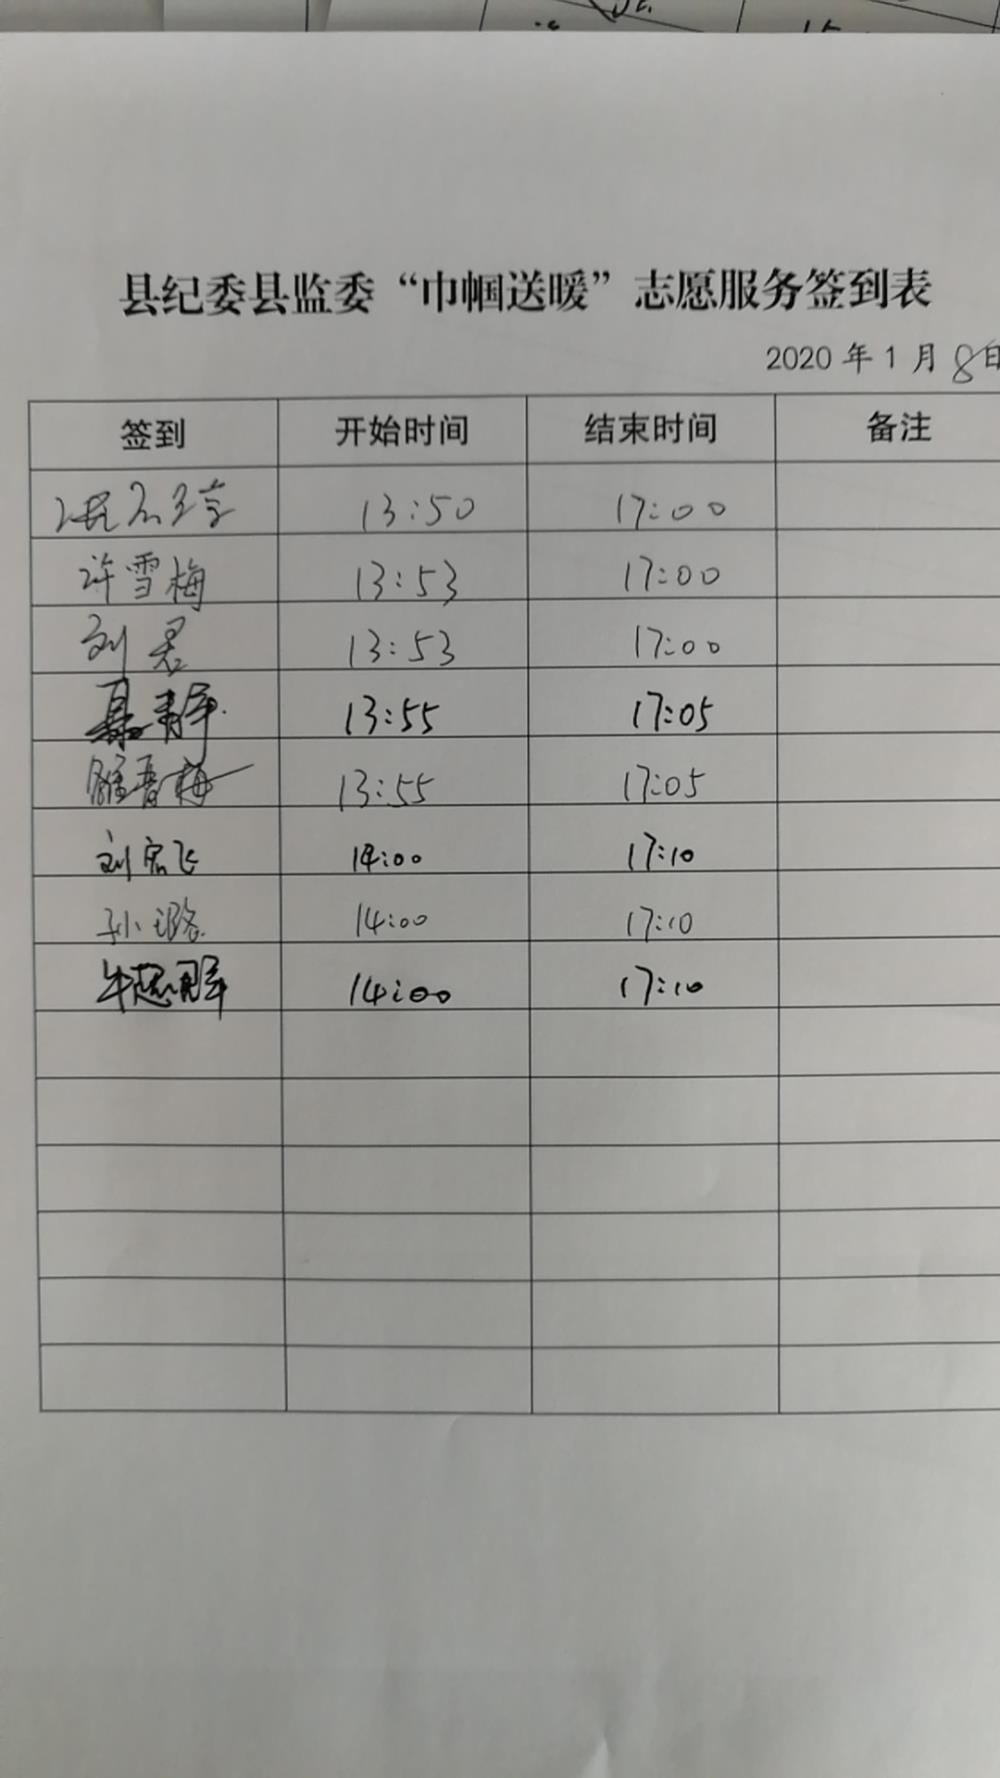 县纪委县监委“巾帼送暖”志愿服务签到表
2020年1月8日
签到 开始时间 结束时间 备注
13:50 17:00
许雪梅 13:53 17:00
刘君 13:53 17:00
聂静 13:55 17:05
13:55 17:05
刘宏飞 14:00 17:10
孙璐 14:00 17:10
牛 14:00 17:10